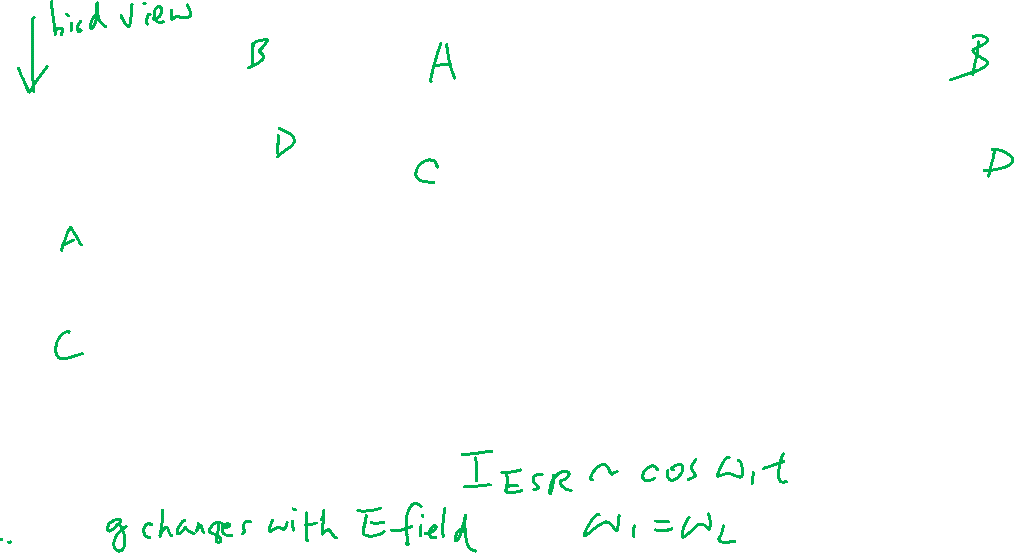 bird view
B A B
D C D
A
C
I_ESR ~ cos ω₁t
g changes with E field ω₁ = ω_L